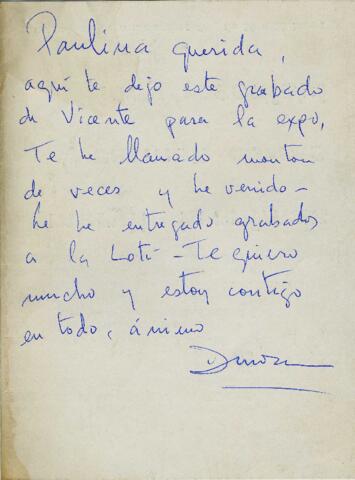 Paulina querida,
aquí te dejo este grabado
de Vicente para la expo,
Te he llamado monton
de veces y he venido –
he he entregado grabados
a la Loti – Te quiero
mucho y estoy contigo
en todo, ánimo